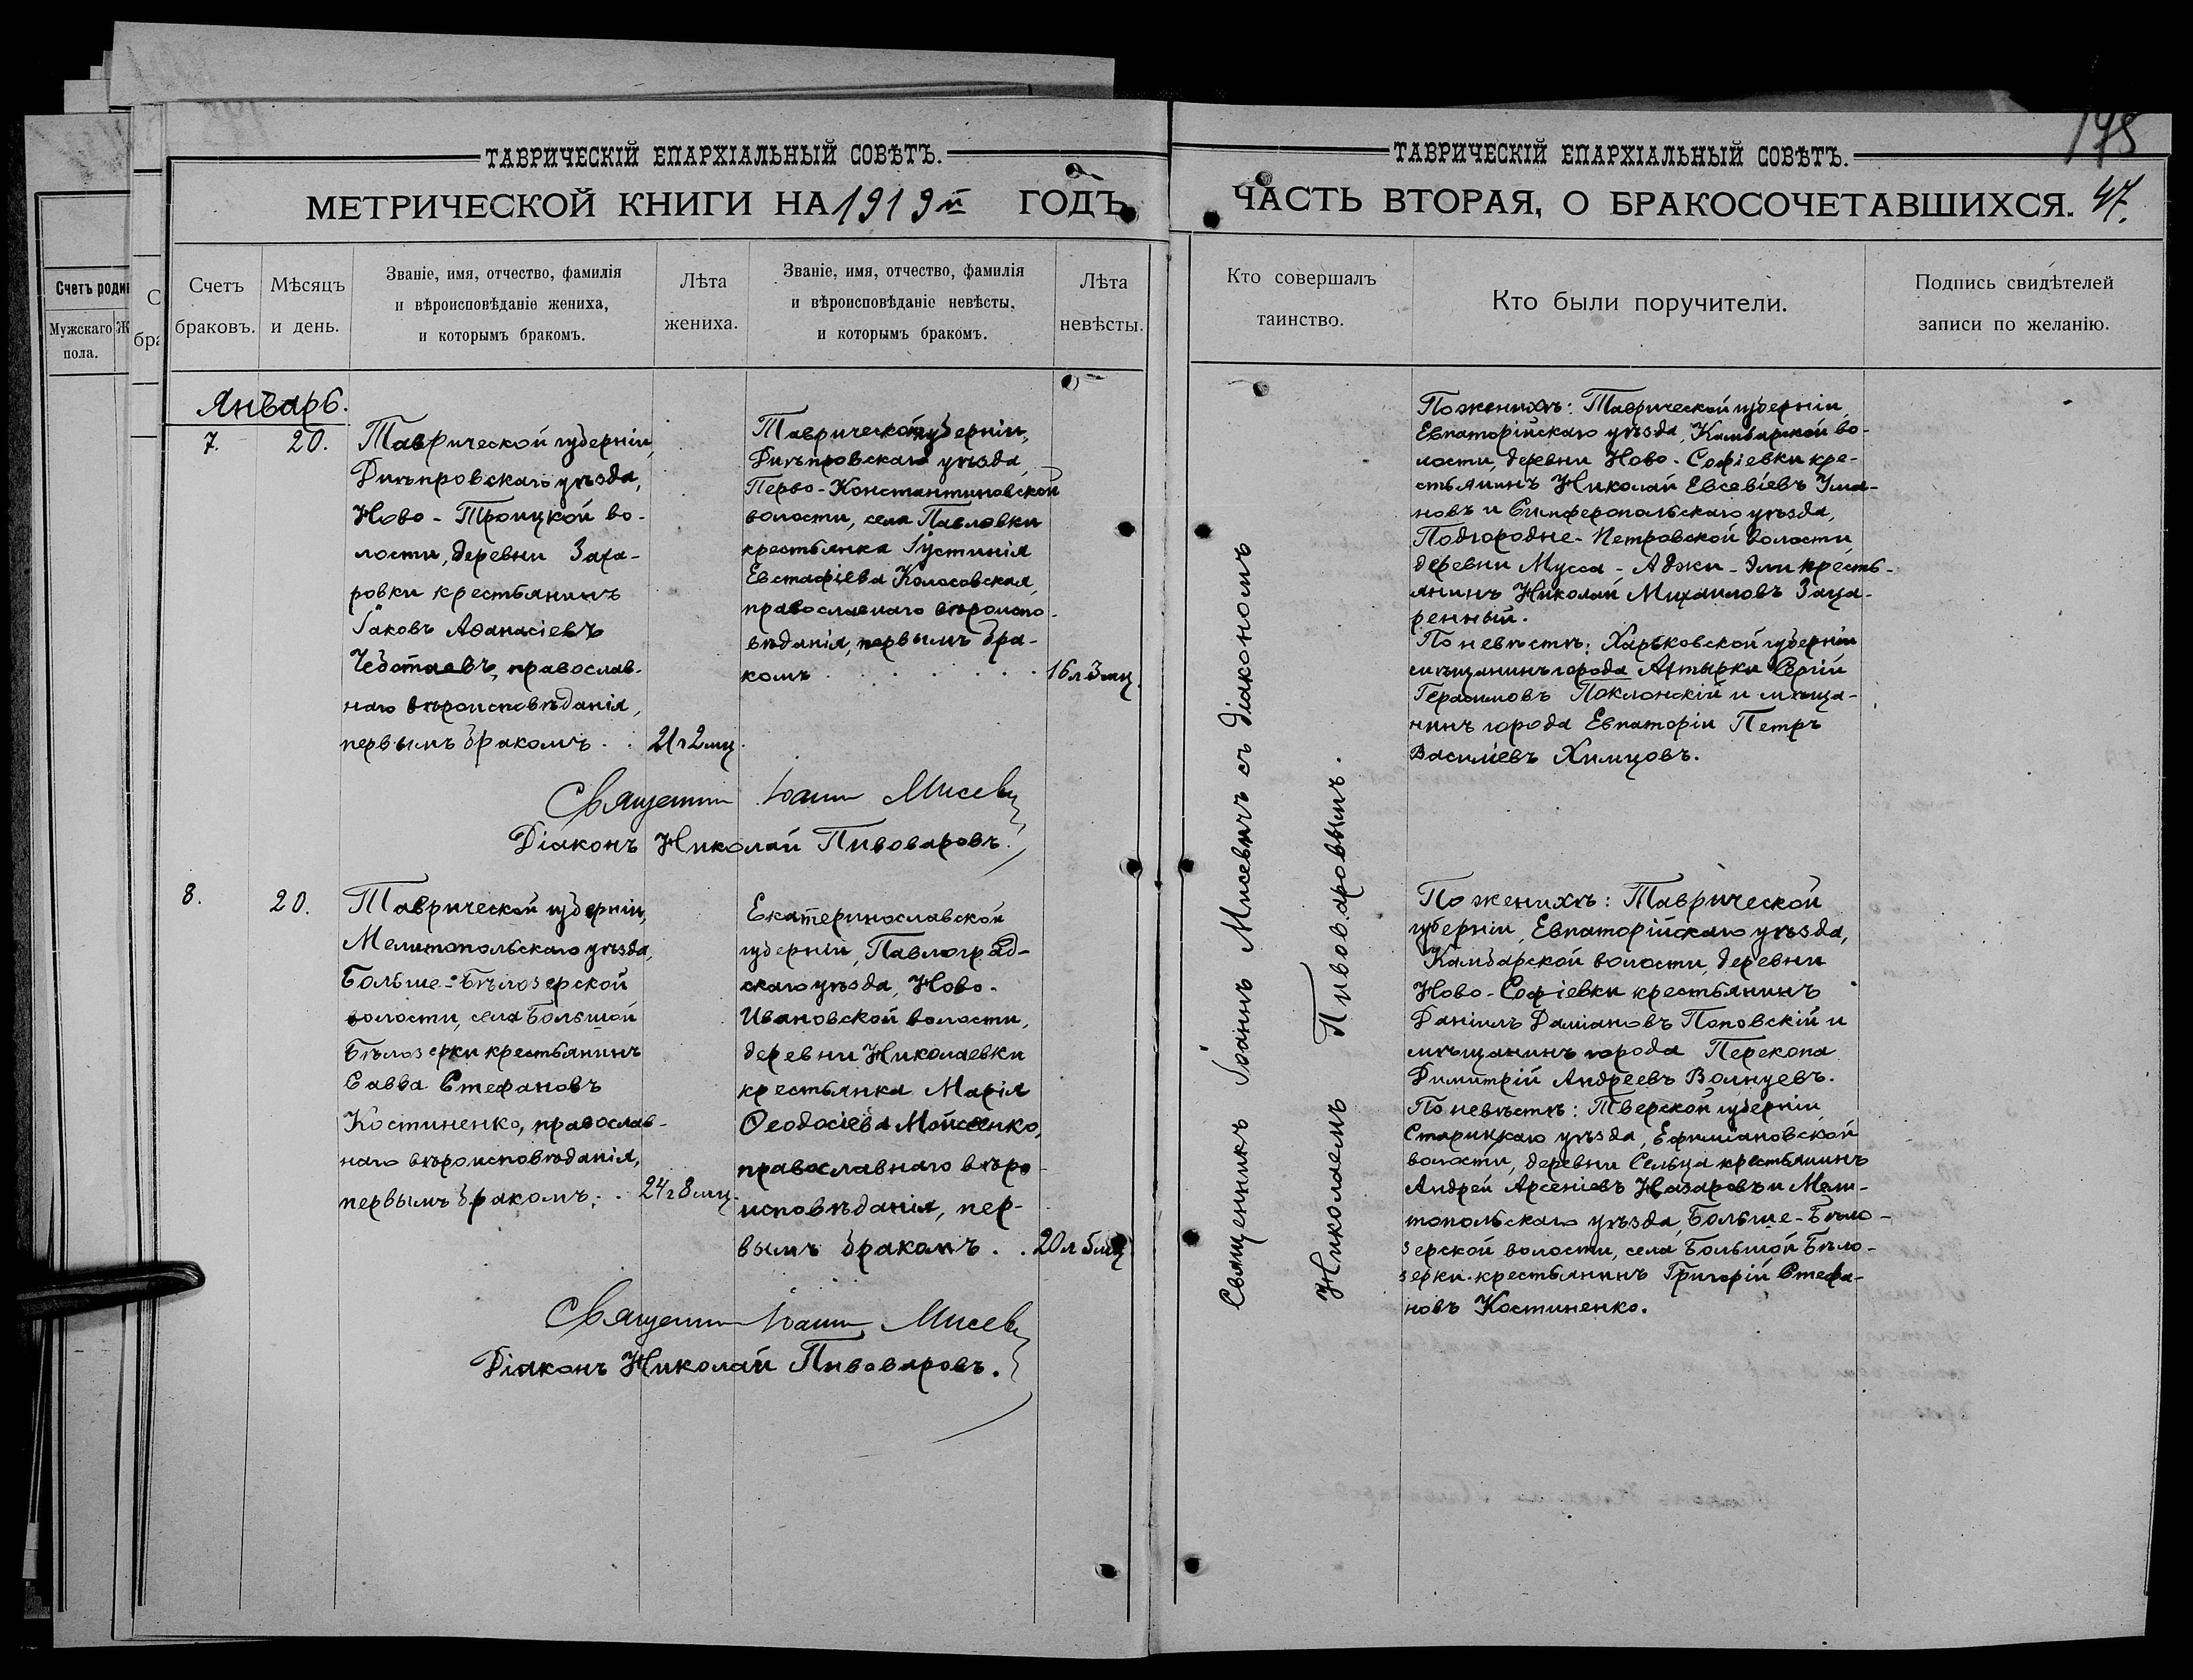 ТАВРИЧЕСКІЙ ЕПАРХІАЛЬНЫЙ СОВѢТЪ.
МЕТРИЧЕСКОЙ КНИГИ НА 1919й ГОДЪ
Счетъ
браковъ.
Мѣсяцъ
и день.
Званіе, имя, отчество, фамилія
и вѣроисповѣданіе жениха,
и которымъ бракомъ.
Лѣта
жениха.
Званіе, имя, отчество, фамилія
и вѣроисповѣданіе невѣсты,
и которымъ бракомъ.
Лѣта
невѣсты.
Счетъ роди
Мужскаго
пола.
Январь.
7.
20.
Таврической губерніи,
Днѣпровскаго уѣзда,
Ново-Троицкой во-
лости, деревни Заха-
ровки крестьянинъ
Іаковъ Аѳанасіевъ
Чеботаевъ, православ-
наго вѣроисповѣданія,
первымъ бракомъ . .
21 г 2 мц.
Таврической губерніи,
Днѣпровскаго уѣзда,
Перво-Константиновской
волости, села Павловки
крестьянка Іустинія
Евстафіева Колосовская,
православнаго вѣроиспо-
вѣданія, первымъ бра-
комъ . . . . . . .
16 л 3 мц.
Священникъ Іоаннъ Мисевичъ
Діаконъ Николай Пивоваровъ.
8.
20.
Таврической губерніи,
Мелитопольскаго уѣзда,
Больше-Бѣлозерской
волости, села Большой
Бѣлозерки крестьянинъ
Савва Стефановъ
Костиненко, православ-
наго вѣроисповѣданія,
первымъ бракомъ. .
24 г 8 мц.
Екатеринославской
губерніи, Павлоград-
скаго уѣзда, Ново-
Ивановской волости,
деревни Николаевки
крестьянка Марія
Ѳеодосіева Мойсеенко,
православнаго вѣро-
исповѣданія, пер-
вымъ бракомъ . .
20 л 5 мц
Священникъ Іоаннъ Мисевичъ
Діаконъ Николай Пивоваровъ.
ТАВРИЧЕСКІЙ ЕПАРХІАЛЬНЫЙ СОВѢТЪ.
ЧАСТЬ ВТОРАЯ, О БРАКОСОЧЕТАВШИХСЯ. 47.
Кто совершалъ
таинство.
Кто были поручители.
Подпись свидѣтелей
записи по желанію.
Священникъ Іоаннъ Мисевичъ съ діакономъ
Николаемъ Пивоваровымъ.
По женихѣ: Таврической губерніи
Евпаторійскаго уѣзда, Камбарской во-
лости, деревни Ново-Софіевки кре-
стьянинъ Николай Евсевіевъ Ума-
новъ и Симферопольскаго уѣзда,
Подгородне-Петровской волости
деревни Мусса-Аджи-Эли кресть-
янинъ Николай Михаиловъ Заца-
ренный.
По невѣстѣ: Харьковской губерніи
мѣщанинъ города Ахтырки Сергій
Герасимовъ Поклонскій и мѣща-
нинъ города Евпаторіи Петръ
Василіевъ Химцовъ.
По женихѣ: Таврической
губерніи, Евпаторійскаго уѣзда,
Камбарской волости, деревни
Ново-Софіевки крестьянинъ
Даніилъ Даміановъ Поповскій и
мѣщанинъ города Перекопа
Димитрій Андреевъ Волнцевъ.
По невѣстѣ: Тверской губерніи
Старицкаго уѣзда, Ефиміановской
волости, деревни Сельца крестьянинъ
Андрей Арсеніевъ Назаровъ и Мели-
топольскаго уѣзда, Больше-Бѣло-
зерской волости, села Большой Бѣло-
зерки крестьянинъ Григорій Стефа-
новъ Костиненко.